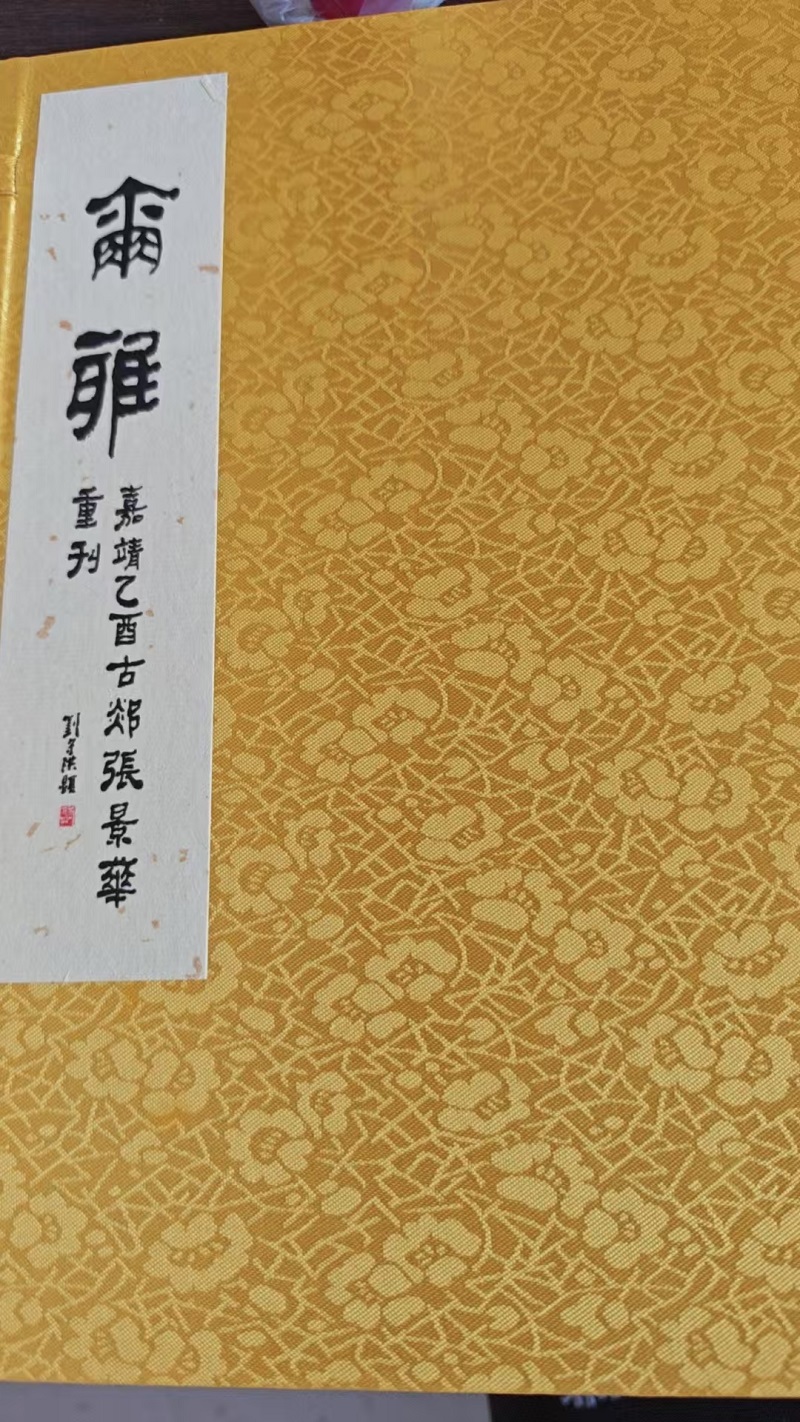 爾雅
嘉靖乙酉古郯張景華
重刊